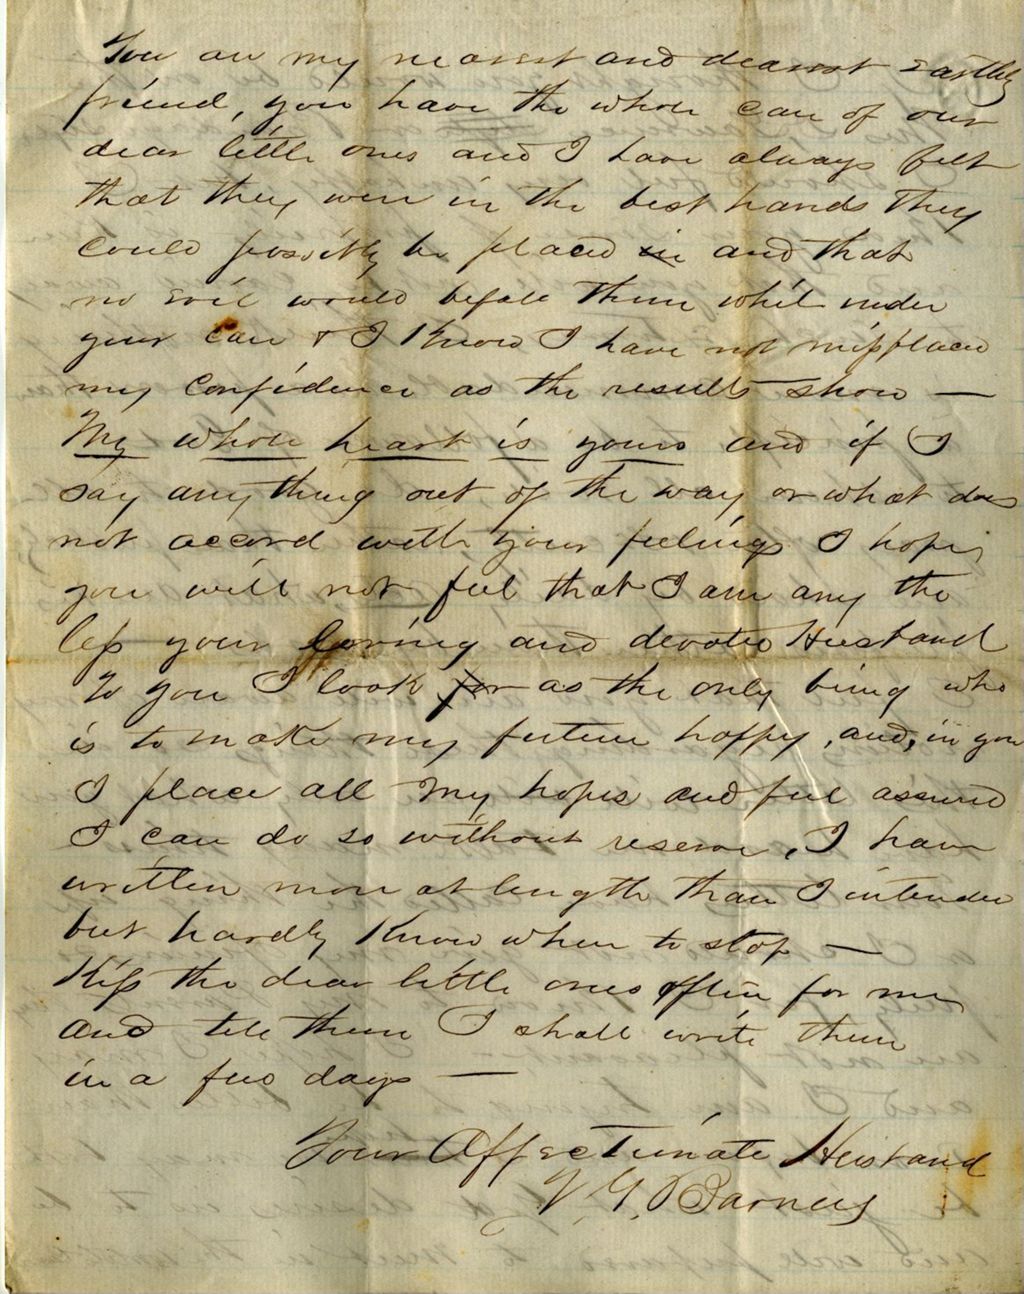 You are my nearest and dearest earthly
friend, you have the whole care of our
dear little ones and I have always felt
that they were in the best hands they
could possibly be placed in and that
no evil would befall them while under
your care & I Know I have not misplaced
my confidence as the results show —
My whole heart is yours and if I
say anything out of the way or what does
not accord with your feelings I hope
you will not feel that I am any the
less your loving and devoted Husband
To you I look for as the only being who
is to make my future happy, and, in you
I place all my hopes and feel assured
I can do so without reserve, I have
written more at length than I intended
but hardly Know when to stop —
Kiss the dear little ones often for me
and tell them I shall write them
in a few days —
Your Affectionate Husband
Barnes